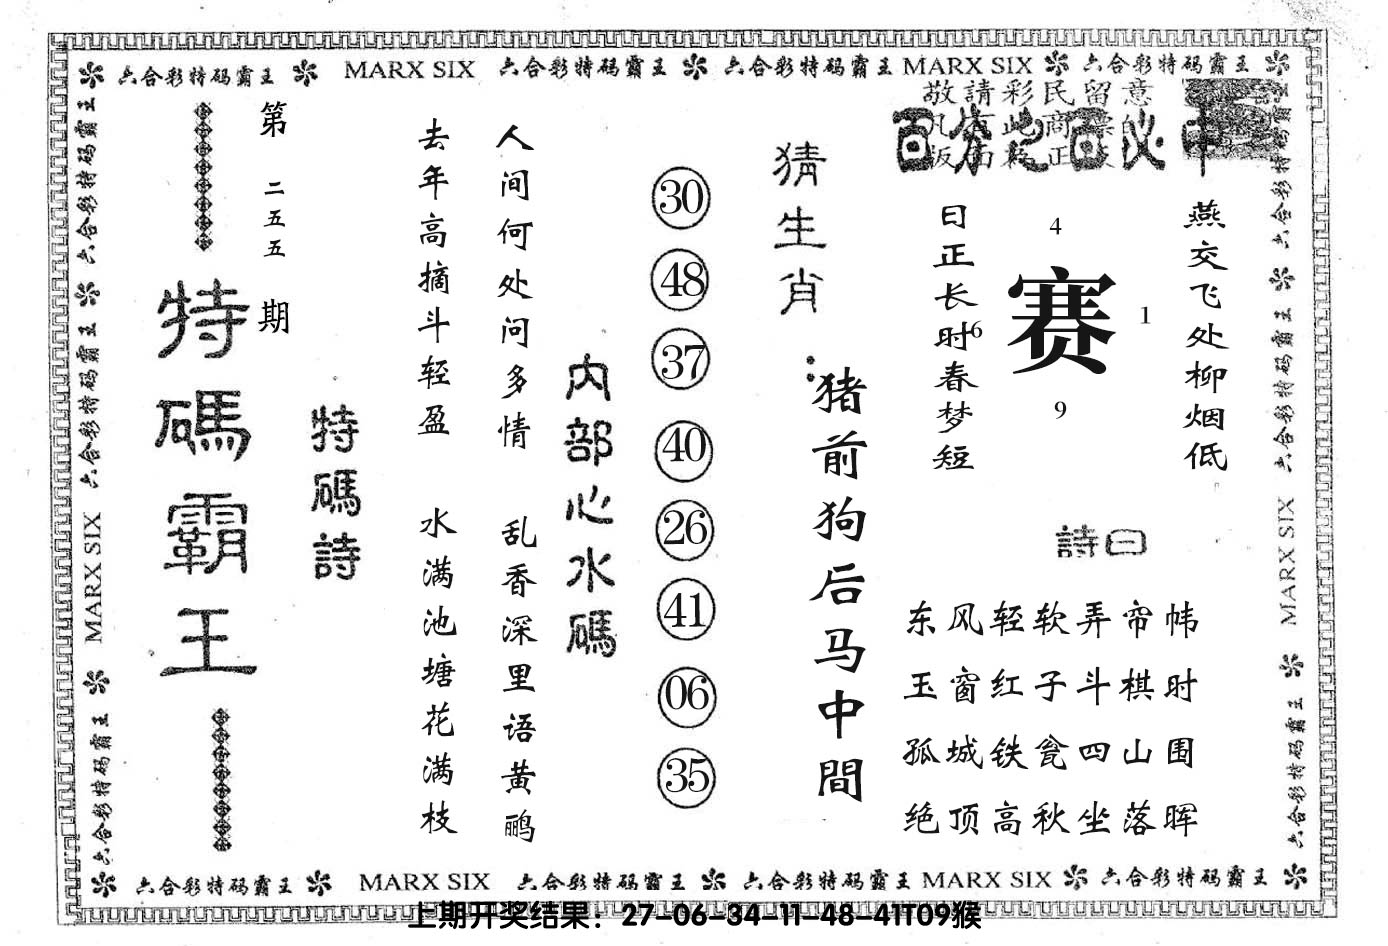 六合彩特码霸王 MARX SIX 六合彩特码霸王 六合彩特码霸王 MARX SIX 六合彩特码霸王
敬請彩民留意
百
中
燕交飞处柳烟低
日正长时春梦短
4
6
赛
1
9
詩曰
东风轻软弄帘帏
玉窗红子斗棋时
孤城铁瓮四山围
绝顶高秋坐落晖
猜生肖:
猪前狗后马中間
30
48
37
40
26
41
06
35
内部心水碼
人间何处问多情
乱香深里语黄鹂
去年高摘斗轻盈
水满池塘花满枝
特碼詩
第二五五期
特碼霸王
六合彩特码霸王 六合彩特码霸王 MARX SIX 六合彩特码霸王
六合彩特码霸王 六合彩特码霸王 MARX SIX 六合彩特码霸王
六合彩特码霸王 MARX SIX 六合彩特码霸王 六合彩特码霸王 MARX SIX 六合彩特码霸王
上期开奖结果：27-06-34-11-48-41T09猴